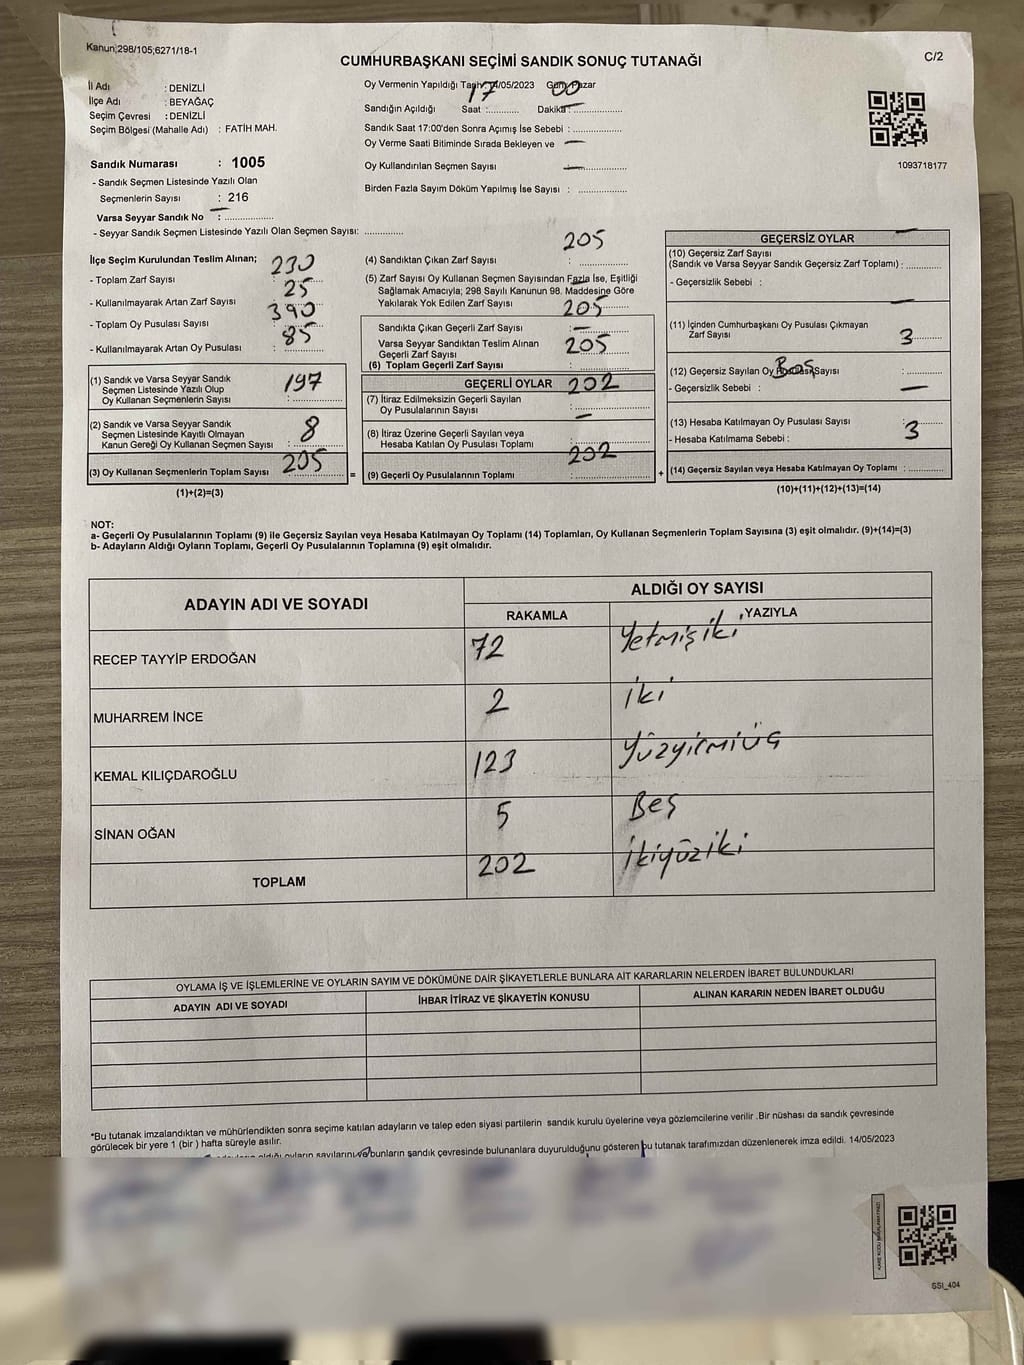 Kanun;298/105;6271/18-1
C/2
CUMHURBAŞKANI SEÇİMİ SANDIK SONUÇ TUTANAĞI
İl Adı : DENİZLİ
İlçe Adı : BEYAĞAÇ
Seçim Çevresi : DENİZLİ
Seçim Bölgesi (Mahalle Adı) : FATİH MAH.
Sandık Numarası : 1005
- Sandık Seçmen Listesinde Yazılı Olan
Seçmenlerin Sayısı : 216
Varsa Seyyar Sandık No :
- Seyyar Sandık Seçmen Listesinde Yazılı Olan Seçmen Sayısı:
Oy Vermenin Yapıldığı Tarih: 14/05/2023 Gün: Pazar
Sandığın Açıldığı Saat : 17 Dakika 00
Sandık Saat 17:00'den Sonra Açımış İse Sebebi :
Oy Verme Saati Bitiminde Sırada Bekleyen ve —
Oy Kullandırılan Seçmen Sayısı : —
Birden Fazla Sayım Döküm Yapılmış İse Sayısı :
1093718177
İlçe Seçim Kurulundan Teslim Alınan;
- Toplam Zarf Sayısı : 230
- Kullanılmayarak Artan Zarf Sayısı : 25
- Toplam Oy Pusulası Sayısı : 390
- Kullanılmayarak Artan Oy Pusulası : 85
(1) Sandık ve Varsa Seyyar Sandık
Seçmen Listesinde Yazılı Olup
Oy Kullanan Seçmenlerin Sayısı : 197
(2) Sandık ve Varsa Seyyar Sandık
Seçmen Listesinde Kayıtlı Olmayan
Kanun Gereği Oy Kullanan Seçmen Sayısı : 8
(3) Oy Kullanan Seçmenlerin Toplam Sayısı : 205
(1)+(2)=(3)
=
(4) Sandıktan Çıkan Zarf Sayısı : 205
(5) Zarf Sayısı Oy Kullanan Seçmen Sayısından Fazla İse, Eşitliği
Sağlamak Amacıyla; 298 Sayılı Kanunun 98. Maddesine Göre
Yakılarak Yok Edilen Zarf Sayısı :
Sandıkta Çıkan Geçerli Zarf Sayısı : 205
Varsa Seyyar Sandıktan Teslim Alınan —
Geçerli Zarf Sayısı :
(6) Toplam Geçerli Zarf Sayısı : 205
GEÇERLİ OYLAR
(7) İtiraz Edilmeksizin Geçerli Sayılan
Oy Pusulalarının Sayısı : 202
(8) İtiraz Üzerine Geçerli Sayılan veya
Hesaba Katılan Oy Pusulası Toplamı : —
(9) Geçerli Oy Pusulalarının Toplamı : 202
+
GEÇERSİZ OYLAR
(10) Geçersiz Zarf Sayısı
(Sandık ve Varsa Seyyar Sandık Geçersiz Zarf Toplamı) : —
- Geçersizlik Sebebi :
(11) İçinden Cumhurbaşkanı Oy Pusulası Çıkmayan —
Zarf Sayısı :
(12) Geçersiz Sayılan Oy Pusulası Sayısı : 3
- Geçersizlik Sebebi : Boş
(13) Hesaba Katılmayan Oy Pusulası Sayısı : —
- Hesaba Katılmama Sebebi :
(14) Geçersiz Sayılan veya Hesaba Katılmayan Oy Toplamı : 3
(10)+(11)+(12)+(13)=(14)
NOT:
a- Geçerli Oy Pusulalarının Toplamı (9) ile Geçersiz Sayılan veya Hesaba Katılmayan Oy Toplamı (14) Toplamları, Oy Kullanan Seçmenlerin Toplam Sayısına (3) eşit olmalıdır. (9)+(14)=(3)
b- Adayların Aldığı Oyların Toplamı, Geçerli Oy Pusulalarının Toplamına (9) eşit olmalıdır.
ADAYIN ADI VE SOYADI
ALDIĞI OY SAYISI
RAKAMLA YAZIYLA
RECEP TAYYİP ERDOĞAN 72 Yetmişiki
MUHARREM İNCE 2 iki
KEMAL KILIÇDAROĞLU 123 Yüzyirmiüç
SİNAN OĞAN 5 Beş
TOPLAM 202 İkiyüziki
OYLAMA İŞ VE İŞLEMLERİNE VE OYLARIN SAYIM VE DÖKÜMÜNE DAİR ŞİKAYETLERLE BUNLARA AİT KARARLARIN NELERDEN İBARET BULUNDUKLARI
ADAYIN ADI VE SOYADI İHBAR İTİRAZ VE ŞİKAYETİN KONUSU ALINAN KARARIN NEDEN İBARET OLDUĞU
*Bu tutanak imzalandıktan ve mühürlendikten sonra seçime katılan adayların ve talep eden siyasi partilerin sandık kurulu üyelerine veya gözlemcilerine verilir .Bir nüshası da sandık çevresinde
görülecek bir yere 1 (bir ) hafta süreyle asılır.
aldığı oyların sayılarını ve bunların sandık çevresinde bulunanlara duyurulduğunu gösteren bu tutanak tarafımızdan düzenlenerek imza edildi. 14/05/2023
SSI_404